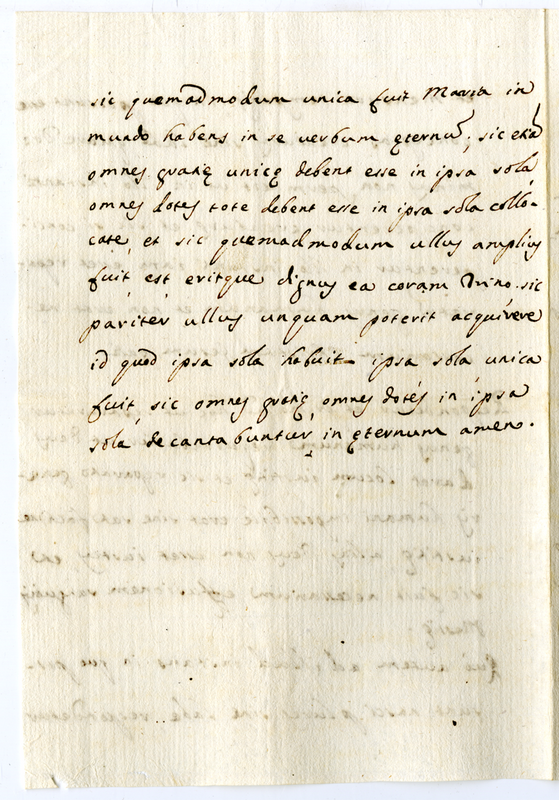 sic quemadmodum unica fuit Maria in
mundo habens in se verbum ęternũ; sic etiã
omnes gratię unicę debent esse in ipsa sola
omnes dotes tote debent esse in ipsa sola collo-
cate, et sic quemadmodum ullus amplius
fuit est eritque dignus ea coram Trino. sic
pariter ullus unquam poterit acquirere
id quod ipsa sola habuit ipsa sola unica
fuit, sic omnes gratię omnes dotes in ipsa
sola decantabuntur, in ęternum amen.